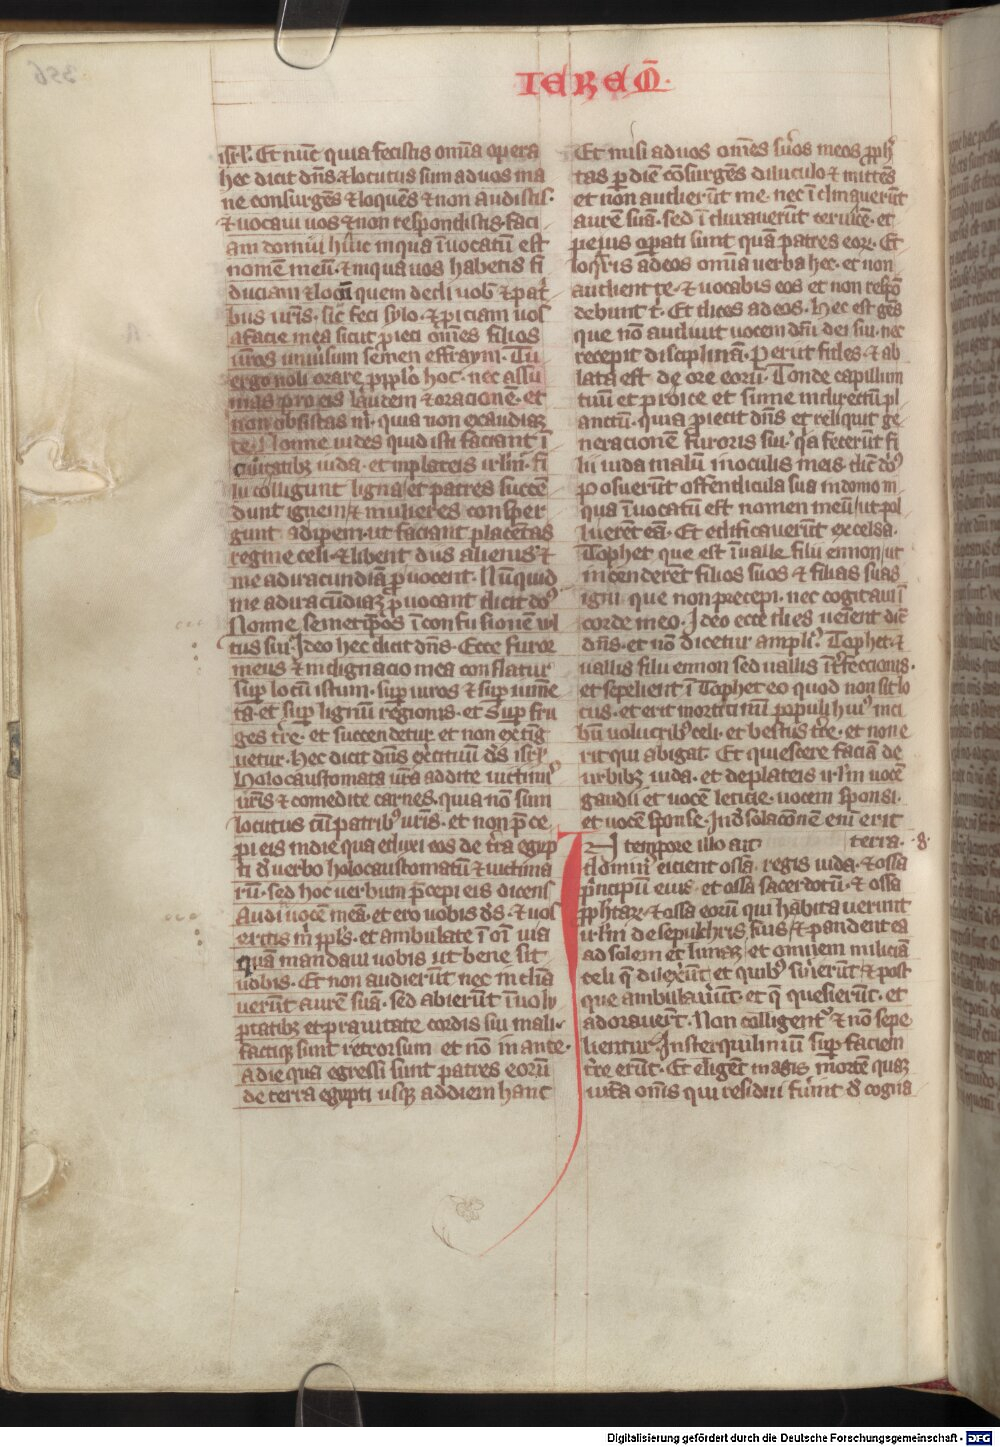 IEREM̄.
isrl'. Et nūc quia fecistis om̄ia opera
hec dicit dn̄s ⁊ locutus sum ad uos ma
ne consurgēs ⁊ loquēs ⁊ non audistis.
⁊ uocaui uos ⁊ non respondistis. faci
am domui huic in qua īuocatū est
nomē meū. ⁊ in qua uos habetis fi
duciam ⁊ locū quem dedi uob' ⁊ pat'
bus ur̄is. sic feci sylo. ⁊ ꝓiciam uos
a facie mea sicut ꝓieci om̄es filios
ur̄os uniu'sum semen effraym. Tu
ergo noli orare ꝓ ppl'o hoc. nec assu
mas pro eis laudem ⁊ oracione. et
non obsistas m'. quia non exaudiaꝫ
te. Nonne uides quid isti faciant ī
ciuitatibꝫ iuda. et in plateis ir'lm. fi
lii colligunt ligna et patres succē
dunt ignem ⁊ mulieres consper
gunt adipem. ut faciant placētas
regine celi. ⁊ libent diis alienis ⁊
me ad iracundiā ꝓuocent. Nūquid
me ad iracūdiaꝫ ꝓuocant dicit do'
Nonne semetip̄os ī confusionē uul
tus sui. Ideo hec dicit dn̄s. Ecce furor
meus ⁊ indignacio mea conflatur
sup̄ locū istum. sup̄ uiros ⁊ sup̄ iume
ta. et sup̄ lignū regionis. et sup̄ fru
ges t're. et succendetur et non extīg
uetur. Hec dicit dn̄s ex'cituū d's isrl'.
Holocaustomata ur̄a addite uictimis
ur̄is ⁊ comedite carnes. quia nō sum
locutus cū patrib' ur̄is. et non p̄ce
pi eis in die qua eduxi eos de t'ra egyp
ti d' uerbo holocaustomatū ⁊ uictima
rū. sed hoc uerbum p̄cepi eis dicens
Audi uocē meā. et ero uobis d's. ⁊ uos
eritis m' ppl's. et ambulate ī oī uia
quā mandaui uobis ut bene sit
uobis. Et non audierūt nec inclīa
uerūt aurē suā. sed abierūt ī uolu
ptatibꝫ et prauitate cordis sui mali.
factiqꝫ sunt retrorsum et nō in ante.
a die qua egressi sunt patres eorū
de terra egypti usqꝫ ad diem hanc
Et misi ad uos om̄es s'uos meos ꝓph'
tas p̱ diē cōsurgēs diluculo ⁊ mittēs
et non audierūt me. nec īclinauerūt
aurē suā. sed īdurauerūt ceruicē. et
peius oꝑati sunt quā patres eoꝝ. Et
loq̄ris ad eos om̄ia uerba hec. et non
audient te. ⁊ uocabis eos et non respō
debunt t'. Et dices ad eos. Hec est gēs
que nō audiuit uocem dn̄i dei sui. nec
recepit disciplinā. Periit fides. ⁊ ab
lata est de ore eorū. Tonde capillum
tuū et proice et sume in directū pl
anctū. quia ꝓiecit dn̄s et reliquit ge
nerationē furoris sui. q'a fecerūt fi
lii iuda malū in oculis meis dic' do'
Posuerūt offendicula sua in domo in
qua īuocatū est nomen meū ut pol
luerēt eā. Et edificauerūt excelsa.
Tophet que est ī ualle filii ennon ut
incenderēt filios suos ⁊ filias suas
igni que non precepi. nec cogitaui ī
corde meo. Ideo ecce dies ueīent dic'
dn̄s. et nō dicetur ampli'. Tophet. ⁊
uallis filii ennon sed uallis īt'feccionis.
et sepelient ī Tophet eo quod non sit lo
cus. et erit morticinū populi hui' in ci
bū uolucrib' celi. et bestiis t're. et non e
rit qui abigat. Et quiescere faciā de
urbibꝫ iuda. et de plateis ir'lm uocē
gaudii et uocē leticie. uocem sponsi.
et uocē sponse. In desolacōnē enī erit
terra. .8.
IN tempore illo ait
dominꝰ eicient ossa regis iuda. ⁊ ossa
p'ncipū eius. et ossa sacerdotū. ⁊ ossa
ꝓphetaꝝ. ⁊ ossa eorū qui habitauerunt
ir'lm de sepulchris suis ⁊ pandent ea
ad solem et lunaꝫ et omnem miliciā
celi q̄ dilexerūt et quib' s'uierūt ⁊ post
que ambulau'ūt. et q̄ quesierūt. et
adorauerūt. Non colligent' ⁊ nō sepe
lientur. In sterquiliniū sup̄ faciem
t're erūt. Et eligēt magis mortē quaꝫ
uitā om̄s qui residui fu'int d' cogna